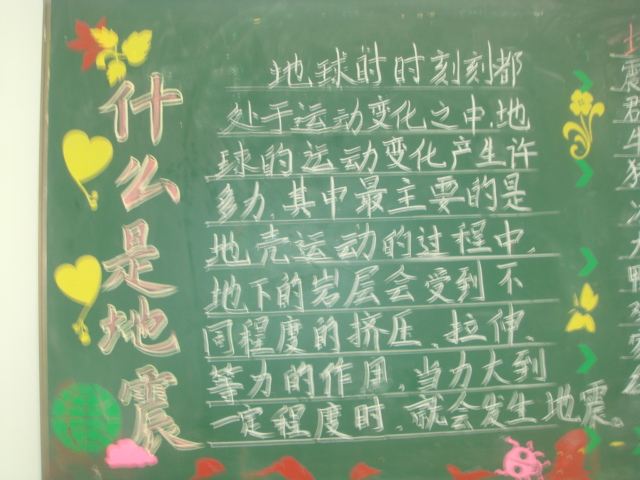 什么是地震
地球时时刻刻都
处于运动变化之中,地
球的运动变化产生许
多力,其中最主要的是
地壳运动的过程中,
地下的岩层会受到不
同程度的挤压、拉伸、
等力的作用,当力大到
一定程度时,就会发生地震。